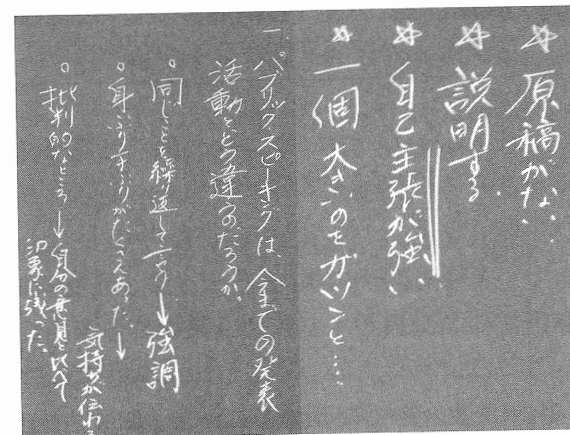 ☆ 原稿がない。
☆ 説明する。
☆ 自己主張が強い。
☆ 一個大きいのをガツンと……
一、パブリックスピーキングは、今までの発表
活動とどう違うのだろうか。
○ 同じことを繰り返して言う→強調
○ 身ぶり手ぶりがたくさんあった。→
気持ちが伝わる
○ 批判的なところ→自分の意見と比べて
印象に残った。